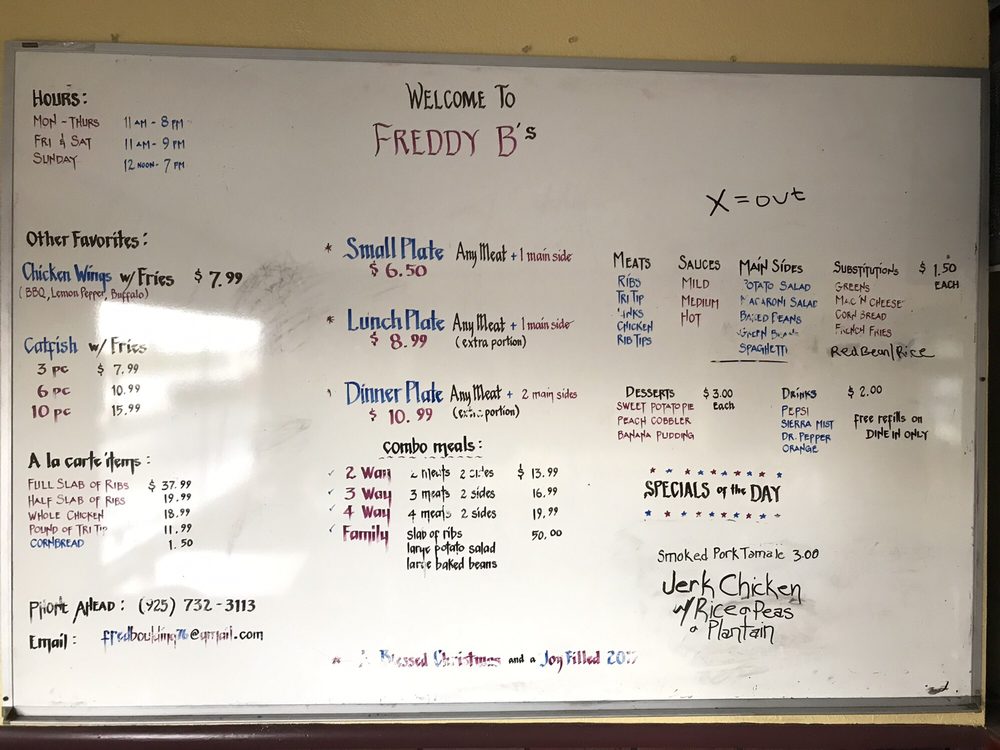 HOURS:
MON - THURS 11 AM - 8 PM
FRI & SAT 11 AM - 9 PM
SUNDAY 12 NOON - 7 PM
WELCOME TO
FREDDY B's
X = out
Other Favorites:
Chicken Wings w/ Fries $ 7.99
(BBQ, Lemon Pepper, Buffalo)
Catfish w/ Fries
3 pc $ 7.99
6 pc 10.99
10 pc 15.99
A la carte items:
FULL SLAB OF RIBS $ 37.99
HALF SLAB OF RIBS 19.99
WHOLE CHICKEN 18.99
POUND OF TRI TIP 11.99
CORNBREAD 1.50
PHONE AHEAD: (925) 732-3113
Email: fredboulding76@gmail.com
* Small Plate Any Meat + 1 main side
$ 6.50
* Lunch Plate Any Meat + 1 main side
$ 8.99 (extra portion)
* Dinner Plate Any Meat + 2 main sides
$ 10.99 (extra portion)
combo meals:
✓ 2 Way 2 meats 2 sides $ 13.99
✓ 3 Way 3 meats 2 sides 16.99
✓ 4 Way 4 meats 2 sides 19.99
✓ Family slab of ribs 50.00
large potato salad
large baked beans
MEATS
RIBS
TRI TIP
LINKS
CHICKEN
RIB TIPS
SAUCES
MILD
MEDIUM
HOT
MAIN SIDES
POTATO SALAD
MACARONI SALAD
BAKED BEANS
GREEN BEANS
SPAGHETTI
SUBSTITUTIONS $ 1.50
EACH
GREENS
MAC 'N CHEESE
CORN BREAD
FRENCH FRIES
Red Bean/Rice
DESSERTS $ 3.00
each
SWEET POTATO PIE
PEACH COBBLER
BANANA PUDDING
DRINKS $ 2.00
PEPSI
SIERRA MIST
DR. PEPPER
ORANGE
free refills on
DINE IN ONLY
SPECIALS of the DAY
Smoked Pork Tamale 3.00
Jerk Chicken
w/ Rice & Peas
& Plantain
* A Blessed Christmas and a Joy Filled